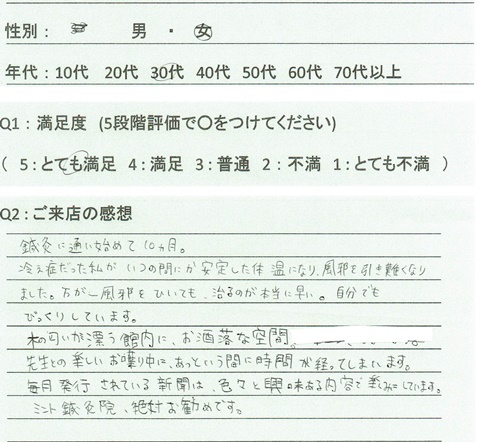 性別： 男 ・ 女
年代：10代 20代 30代 40代 50代 60代 70代以上
Q1：満足度 (5段階評価で〇をつけてください)
( 5：とても満足 4：満足 3：普通 2：不満 1：とても不満 )
Q2：ご来店の感想
鍼灸に通い始めて10ヵ月。
冷え症だった私がいつの間にか安定した体温になり、風邪を引き難くなり
ました。万が一風邪をひいても、治るのが本当に早い。自分でも
びっくりしています。
木の匂いが漂う館内に、お洒落な空間。
先生との楽しいお喋り中に、あっという間に時間が経ってしまいます。
毎月発行されている新聞は、色々と興味ある内容で楽しみにしています。
ミント鍼灸院、絶対お勧めです。